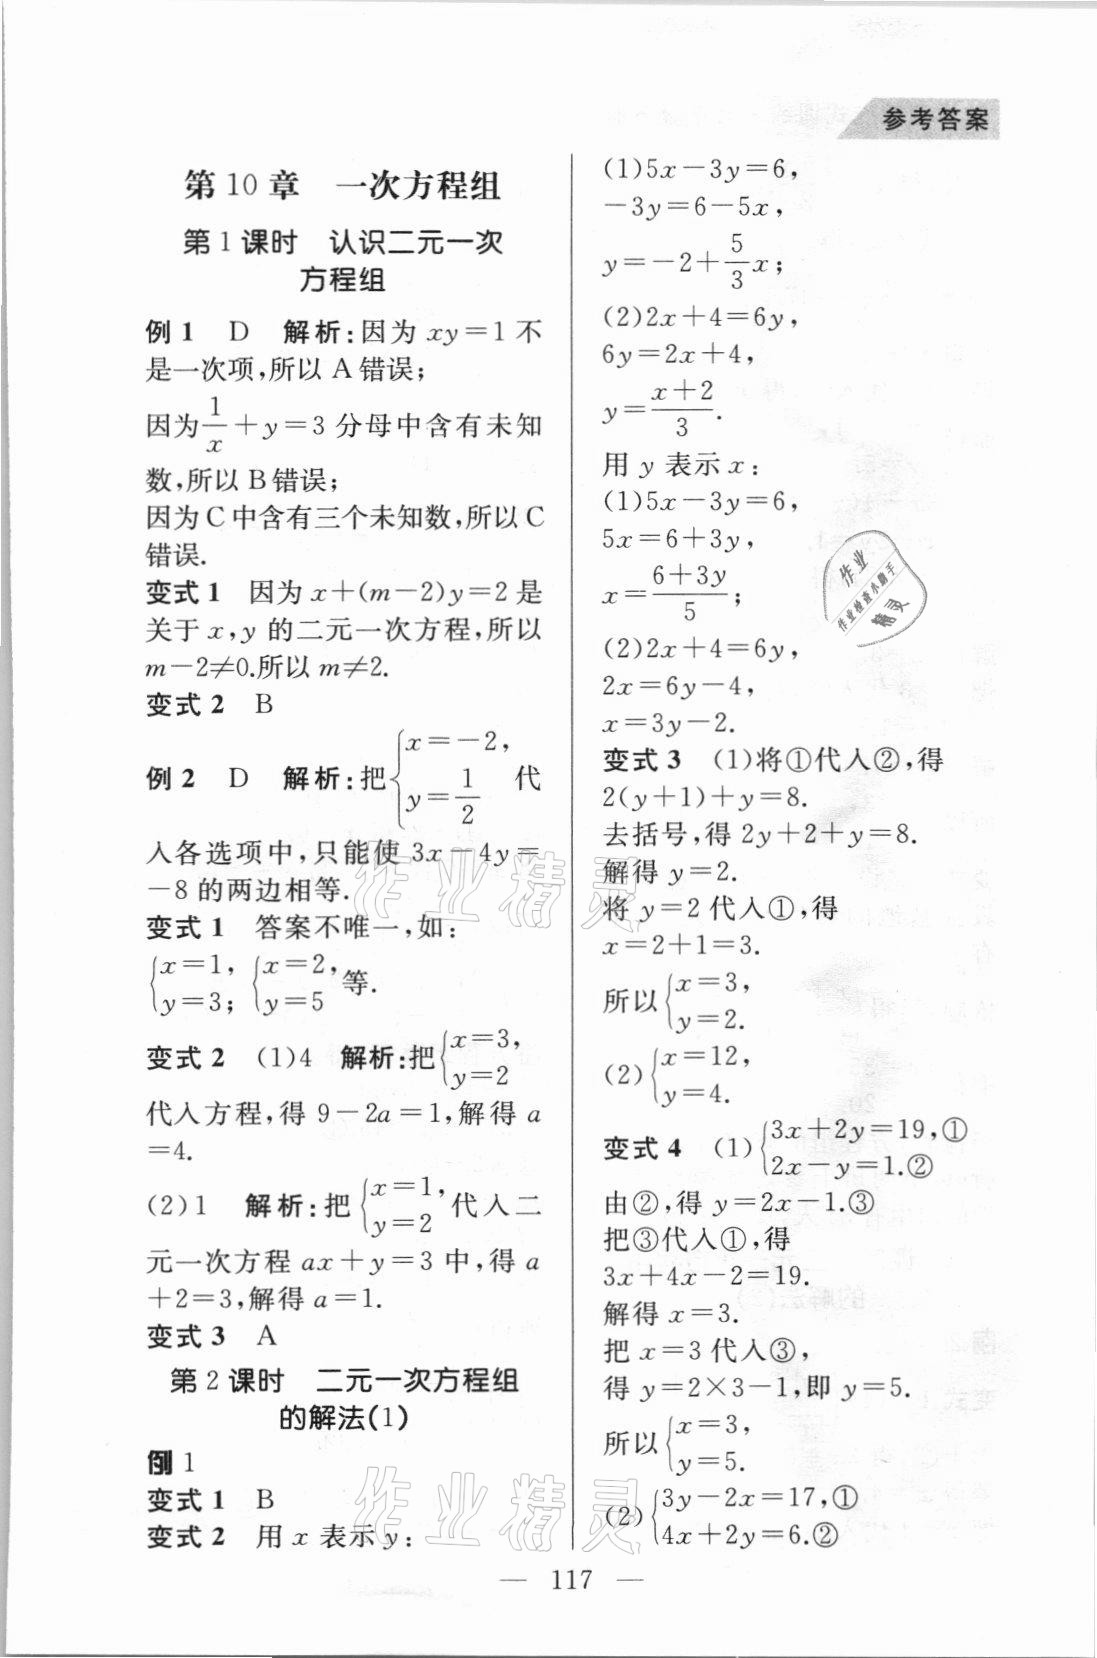 参考答案
第10章 一次方程组
第1课时 认识二元一次
方程组
例1 D 解析:因为 xy=1 不
是一次项,所以 A 错误;
因为1/x+y=3 分母中含有未知
数,所以 B 错误;
因为 C 中含有三个未知数,所以 C
错误.
变式1 因为 x+(m-2)y=2 是
关于 x,y 的二元一次方程,所以
m-2≠0.所以 m≠2.
变式2 B
例2 D 解析:把{x=-2, y=1/2 代
入各选项中,只能使 3x-4y=
-8 的两边相等.
变式1 答案不唯一,如:
{x=1, y=3; {x=2, y=5 等.
变式2 (1)4 解析:把{x=3, y=2
代入方程,得 9-2a=1,解得 a
=4.
(2)1 解析:把{x=1, y=2 代入二
元一次方程 ax+y=3 中,得 a
+2=3,解得 a=1.
变式3 A
第2课时 二元一次方程组
的解法(1)
例1
变式1 B
变式2 用 x 表示 y:
(1)5x-3y=6,
-3y=6-5x,
y=-2+5/3x;
(2)2x+4=6y,
6y=2x+4,
y=(x+2)/3.
用 y 表示 x:
(1)5x-3y=6,
5x=6+3y,
x=(6+3y)/5;
(2)2x+4=6y,
2x=6y-4,
x=3y-2.
变式3 (1)将①代入②,得
2(y+1)+y=8.
去括号,得 2y+2+y=8.
解得 y=2.
将 y=2 代入①,得
x=2+1=3.
所以{x=3, y=2.
(2){x=12, y=4.
变式4 (1){3x+2y=19,① 2x-y=1.②
由②,得 y=2x-1.③
把③代入①,得
3x+4x-2=19.
解得 x=3.
把 x=3 代入③,
得 y=2×3-1,即 y=5.
所以{x=3, y=5.
(2){3y-2x=17,① 4x+2y=6.②
— 117 —
作业
作业检查小助手
精灵
作业精灵
作业精灵